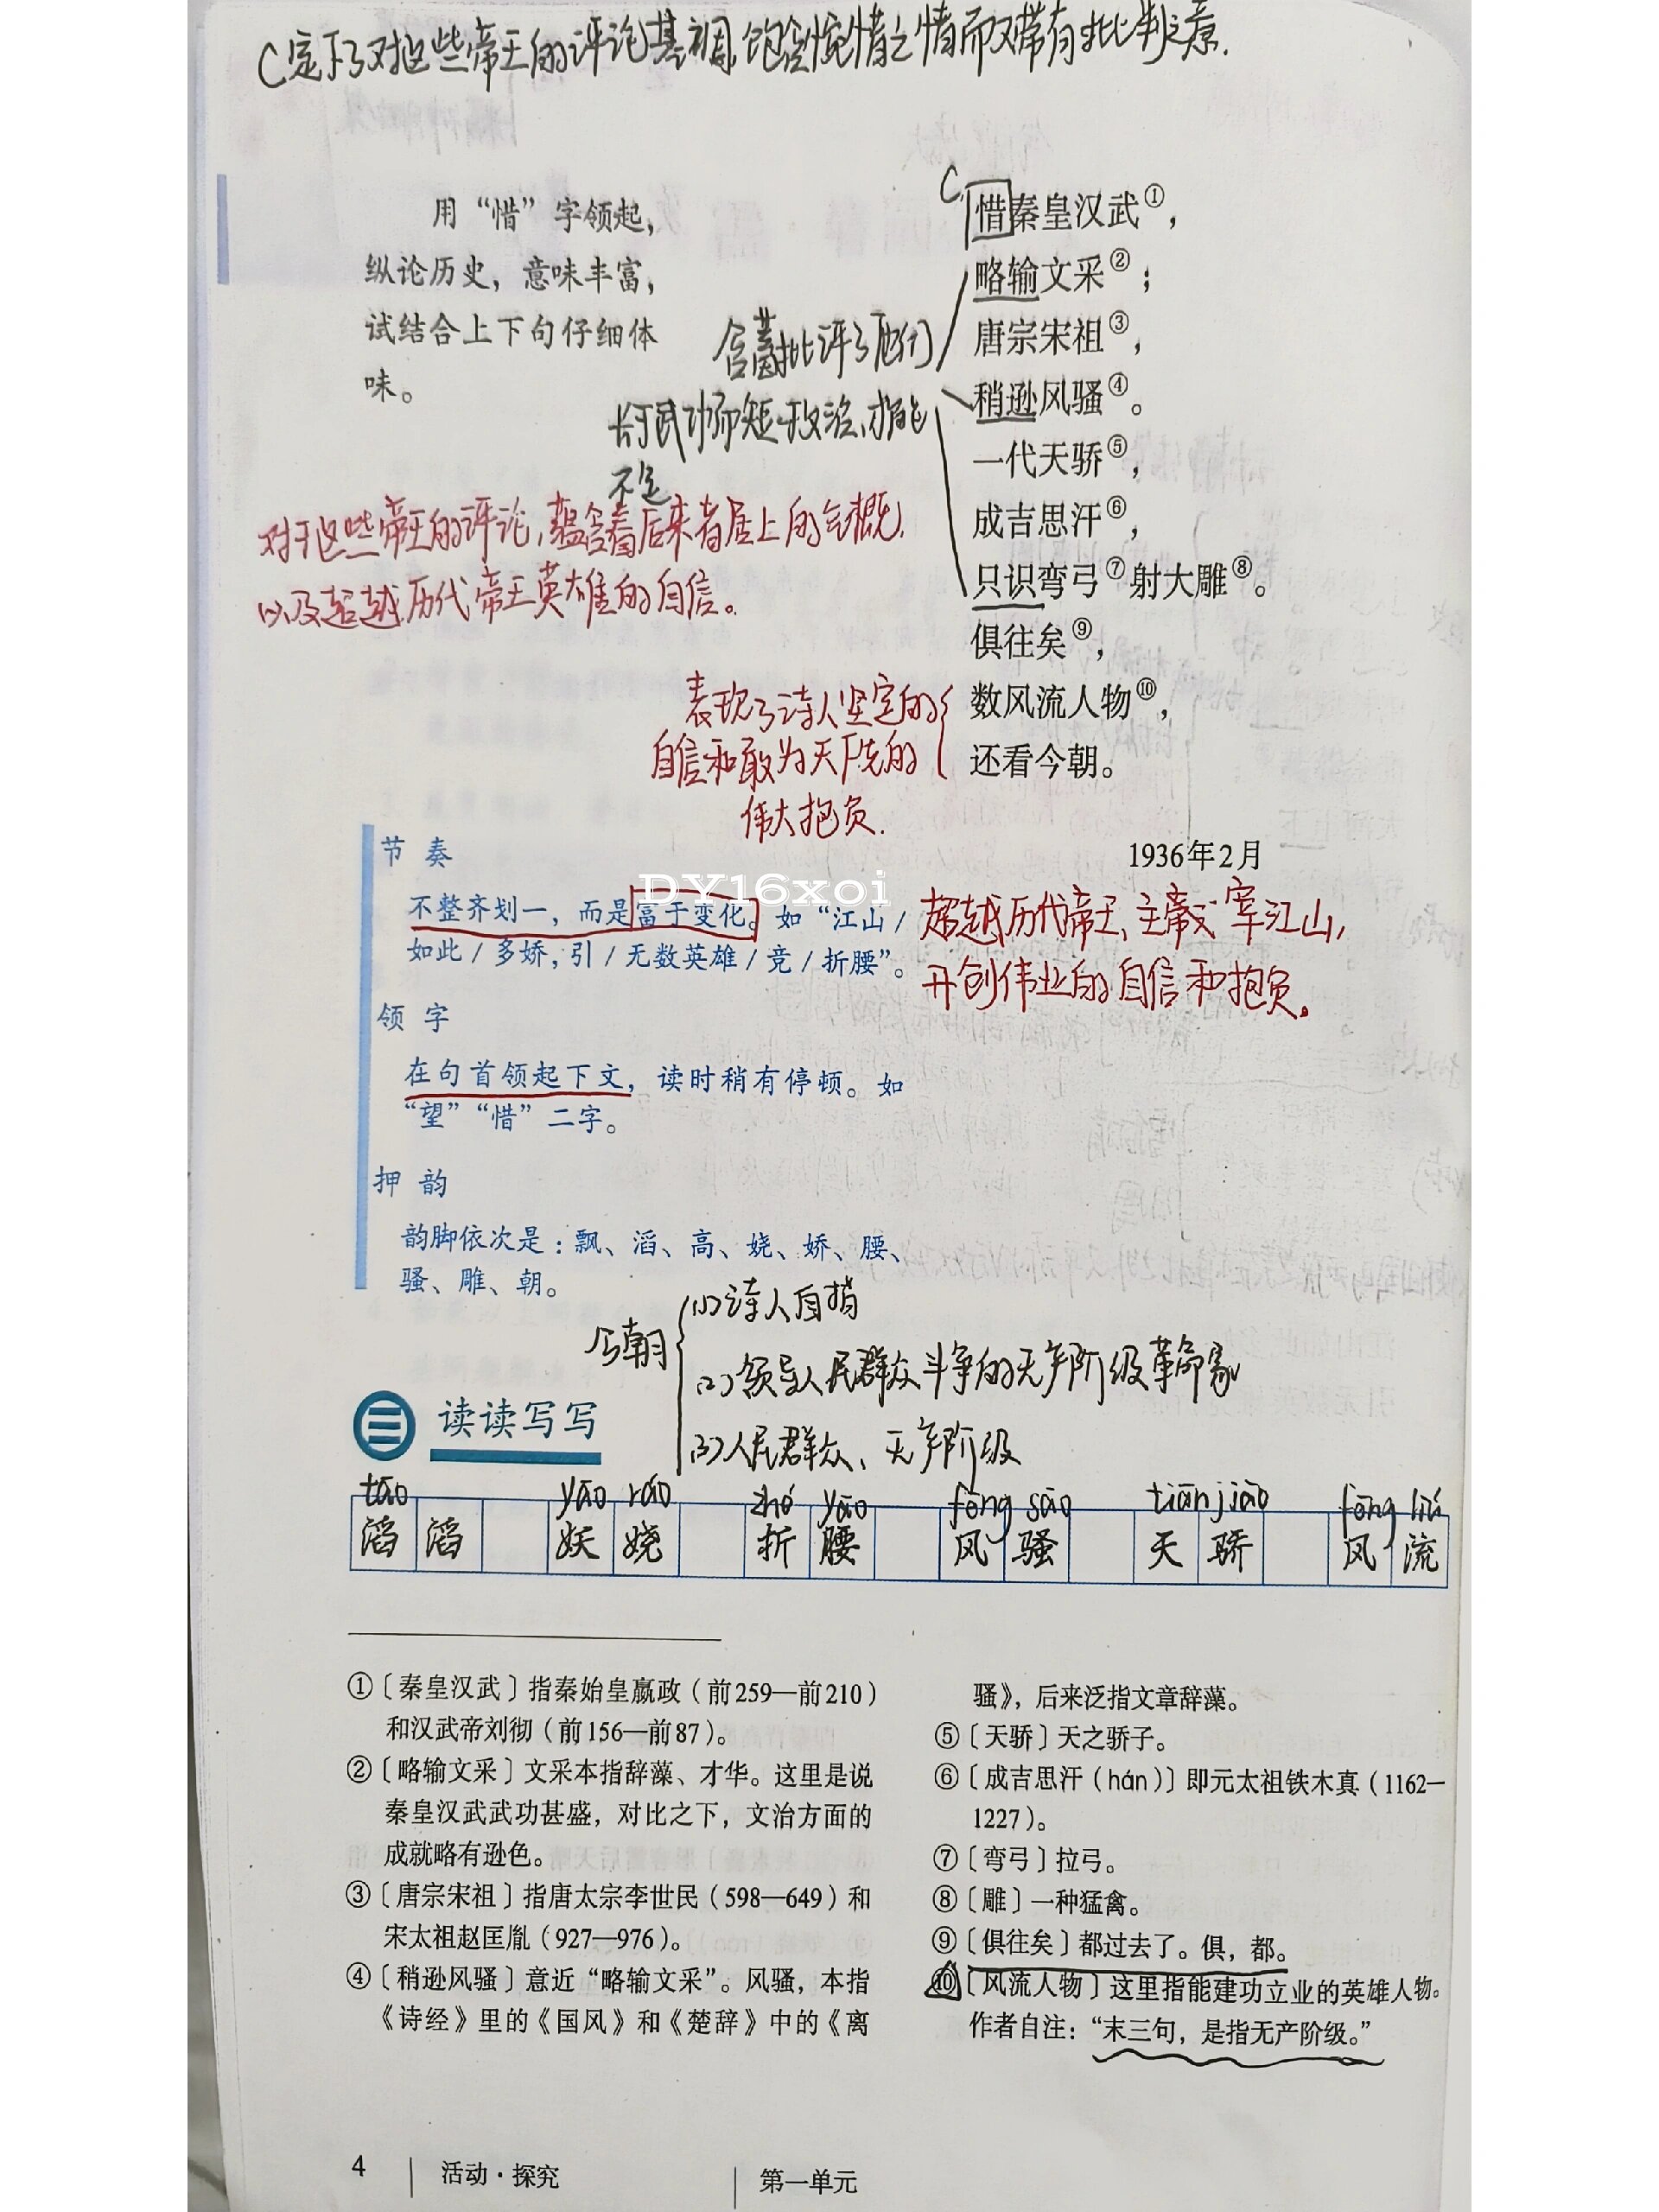 C定下了对这些帝王的评论基调,饱含惋惜之情而又带有批判之意.
用“惜”字领起，
纵论历史，意味丰富，
试结合上下句仔细体
味。
C
惜秦皇汉武①，
略输文采②；
唐宗宋祖③，
稍逊风骚④。
一代天骄⑤，
成吉思汗⑥，
只识弯弓⑦射大雕⑧。
俱往矣⑨，
数风流人物⑩，
还看今朝。
含蓄批评了他们
长于武功而短于政治、才能
不足
对于这些帝王的评论,蕴含着后来者居上的气概,
以及超越历代帝王英雄的自信。
表现了诗人坚定的
自信和敢为天下先的
伟大抱负.
1936年2月
节奏
DY16xoi
不整齐划一，而是富于变化。如“江山/
如此/多娇，引/无数英雄/竞/折腰”。
超越历代帝王、主宰江山,
开创伟业的自信和抱负。
领字
在句首领起下文，读时稍有停顿。如
“望”“惜”二字。
押韵
韵脚依次是：飘、滔、高、娆、娇、腰、
骚、雕、朝。
今朝
(1)诗人自指
(2)领导人民群众斗争的无产阶级革命家
(3)人民群众、无产阶级
读读写写
tāo yāo ráo zhé yāo fēng sāo tiān jiāo fēng liú
滔滔 妖娆 折腰 风骚 天骄 风流
①〔秦皇汉武〕指秦始皇嬴政（前259—前210）
和汉武帝刘彻（前156—前87）。
②〔略输文采〕文采本指辞藻、才华。这里是说
秦皇汉武武功甚盛，对比之下，文治方面的
成就略有逊色。
③〔唐宗宋祖〕指唐太宗李世民（598—649）和
宋太祖赵匡胤（927—976）。
④〔稍逊风骚〕意近“略输文采”。风骚，本指
《诗经》里的《国风》和《楚辞》中的《离
骚》，后来泛指文章辞藻。
⑤〔天骄〕天之骄子。
⑥〔成吉思汗（hán）〕即元太祖铁木真（1162—
1227）。
⑦〔弯弓〕拉弓。
⑧〔雕〕一种猛禽。
⑨〔俱往矣〕都过去了。俱，都。
⑩〔风流人物〕这里指能建功立业的英雄人物。
作者自注：“末三句，是指无产阶级。”
4
活动·探究
第一单元